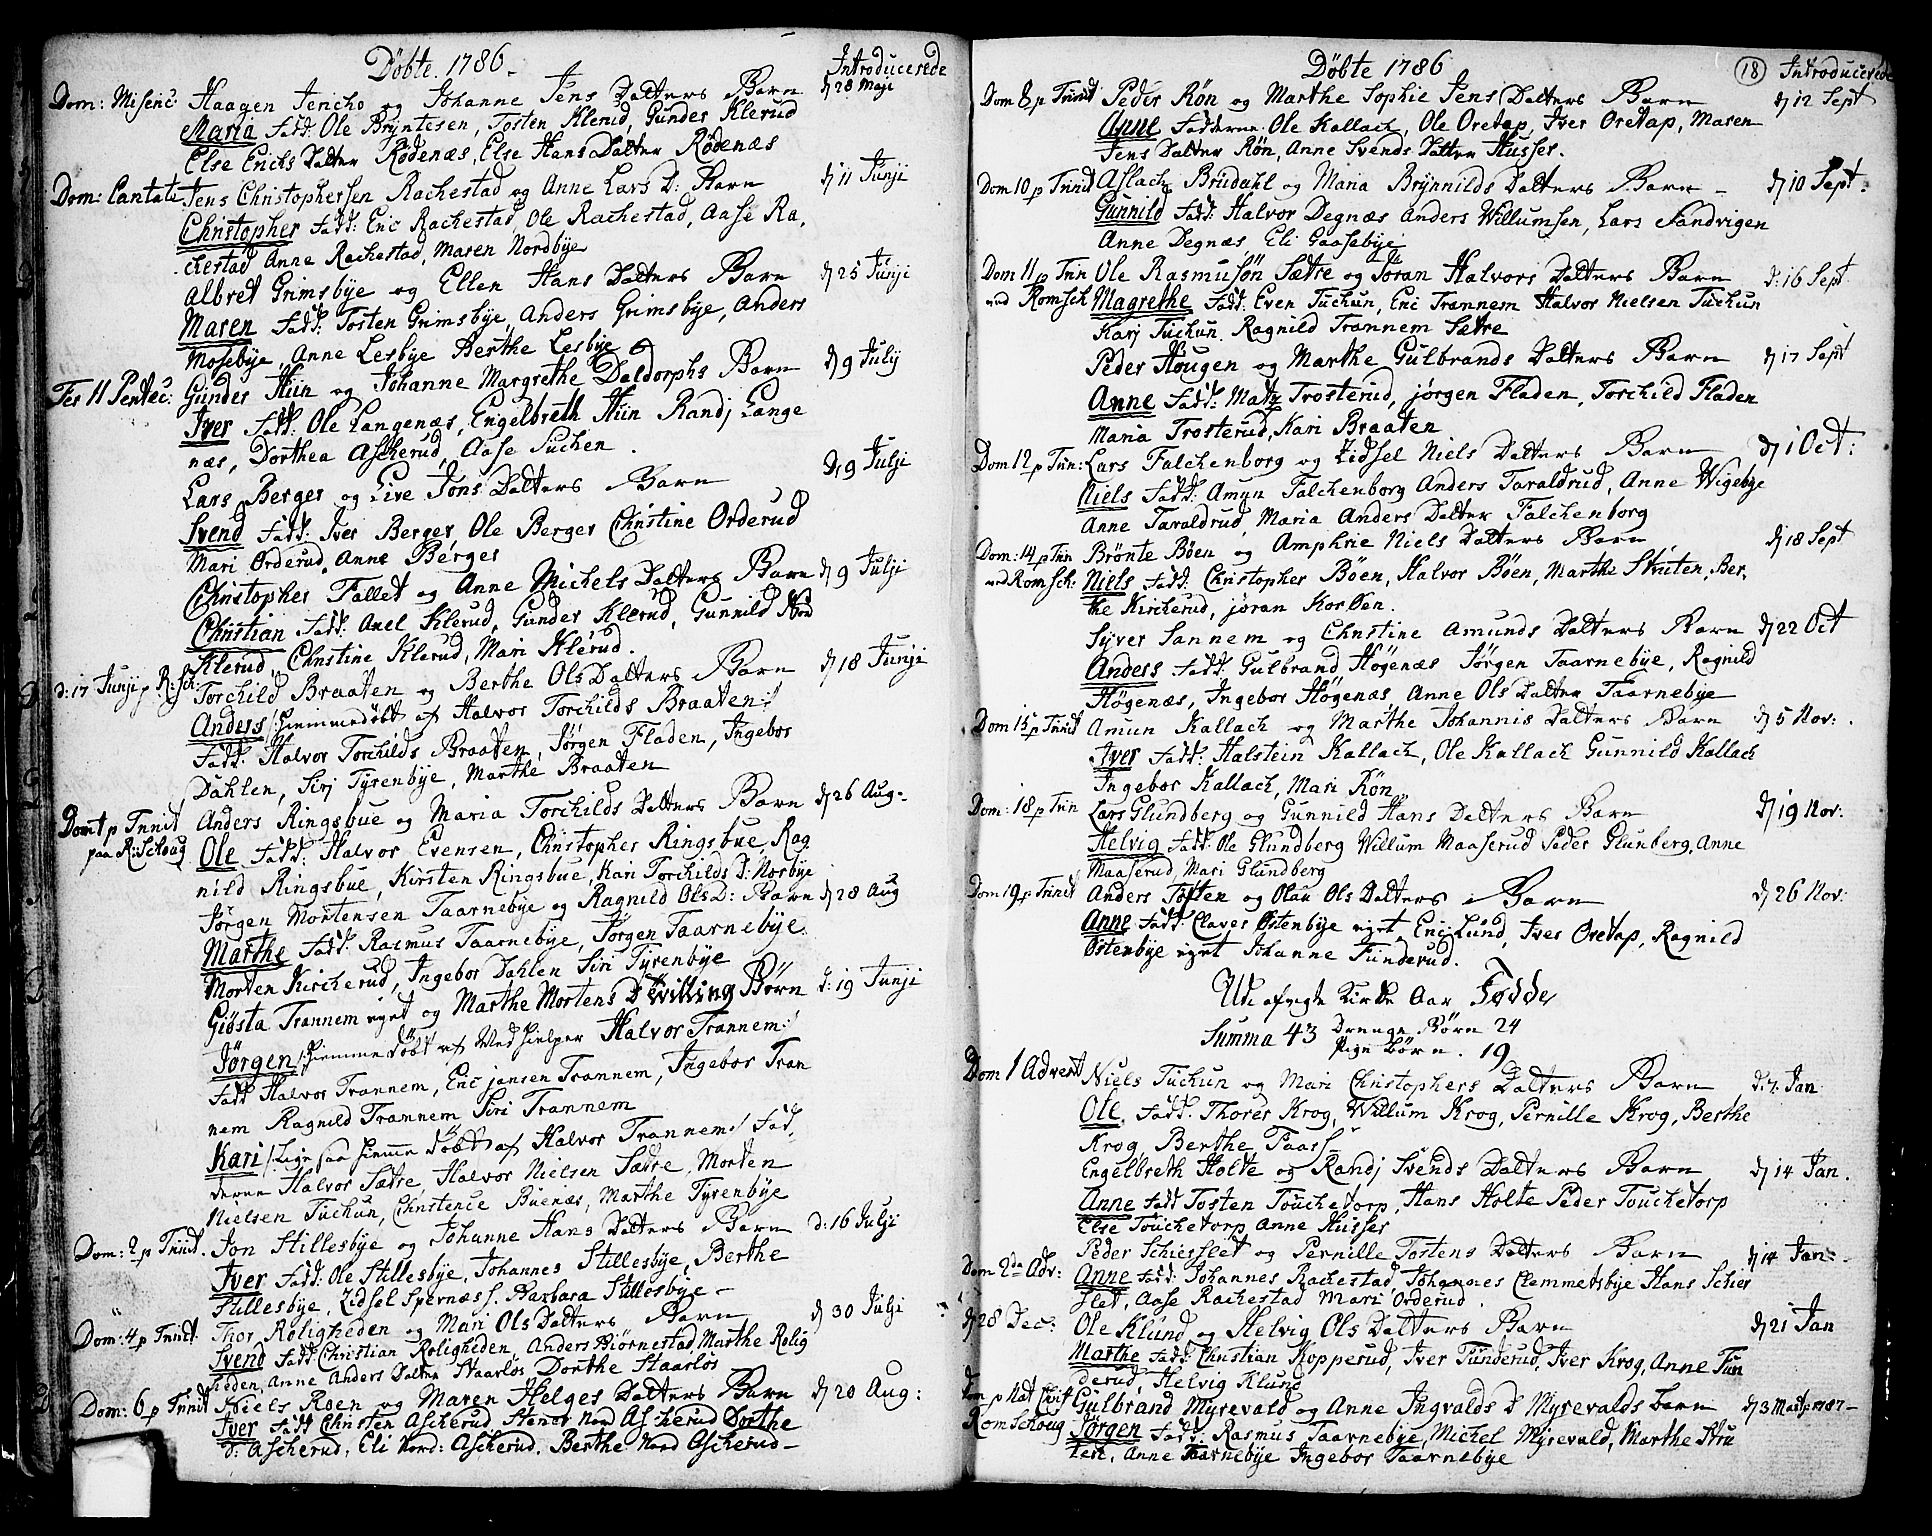 Döbte. 1786 Introducerede
Dom: Misenc: Haagen Jericho og Johanne Jens Datters Barn d 28 Maji
Maria Fadd: Ole Brÿntesen, Tosten Klerud, Gunder Klerud
Else Erichs Datter Rödenæs, Else Hans Datter Rödenæs
Dom: Cantate Jens Christophersen Rachestad og Anne Lars D: Barn d 11 Junji
Christopher Fadd: Eric Rachestad, Ole Rachestad, Aase Ra,
chestad Anne Rachestad, Maren Nordbÿe
Albret Grimsbÿe og Ellen Hans Datters Barn d 25 Junji
Maren Fadd: Tosten Grimsbÿe, Anders Grimsbÿe, Anders
Mosebÿe, Anne Lesbÿe Berthe Lesbÿe
Fer 11 Pentec: Gunder Hiin og Johanne Margrethe Daldorphs Barn d 9 Julij
Iver Fadd: Ole Langenæs, Engelbreth Hiin Randj Lange
næs, Dorthea Ascherud, Aase Tuchen.
Lars Berger og Live Jons Datters Barn d 9 Julji
Svend Fadd: Iver Berger, Ole Berger Christine Orderud
Mari Orderud, Anne Berger
Christopher Fallet og Anne Michels Datters Barn d 9 Julji
Christian Fadd: Axel Klerud, Gunder Klerud, Gunnild Nord
Klerud, Christine Klerud, Mari Klerud.
d: 17 Junji p R: Sch: Torchild Braaten og Berthe Ols Datters Barn d 18 Junji
Anders /: hiemmedöbt af Halvor Torchilds Braaten :/
Fadd: Halvor Torchilds Braaten, Jörgen Fladen, Ingebor
Dahlen, Sirj Tÿrenbÿe, Marthe Braaten
Dom 1 p Trinit Anders Ringsbue og Maria Torchilds Datters Barn d 26 Aug-
paa R: Schoug Ole Fadd: Halvor Evensen, Christopher Ringsbue, Rag
nild Ringsbue, Kirsten Ringsbue, Kari Torchilds D: Norbÿe
Jörgen Mortensen Taarnebÿe og Ragnild Ols D: Barn d 28 Aug
Marthe Fadd: Rasmus Taarnebÿe, Jörgen Taarnebÿe.
Morten Kircherud, Ingebor Dahlen Siri Tÿrenbÿe
Giösta Trannem eget og Marthe Mortens D Tvilling Börn d: 19 Junji
Jörgen /: hiemme döbt af Medhielper Halvor Trannem :/
Fadd Halvor Trannem, Eric Jansen Trannem, Ingebor Tran
nem Ragnild Trannem Siri Trannem
Kari /: Lige saa hiemme döbt af Halvor Trannem :/ Fad,
derne Halvor Sætre, Halvor Nielsen Sætre, Morten
Nielsen Tuchun, Christence Buenæs, Marthe Tÿrenbÿe
Dom: 2 p Trinit. Jon Stillesbÿe og Johanne Hans Datters Barn d: 16 Julji
Iver Fadd: Ole Stillesbÿe, Johannes Stillesbÿe, Berthe
Stillesbÿe, Zidsel Spernæss. Barbara Stillesbÿe-
Dom: 4 p Trinit. Thor Roligheden og Mari Ols Datters Barn d 30 Julji
Svend Fadd Christian Roligheden, Anders Biörnestad, Marthe Rolig
heden, Anne Anders Datter Haarlös Dorthe Haarlös
Dom: 6 p Trinit Niels Roen og Maren Helges Datters Barn d 20 Aug:
Iver Fadd Christen Ascherud Stener Nord Ascherud Dorthe
d: Ascherud, Eli Nord: Ascherud, Berthe Nord Ascherud-
Döbte 1786 18 Introducerede
Dom 8 p Trinit Peder Rön og Marthe Sophie Jens Datters Barn d 12 Sept
Anne Fadderne: Ole Kallach, Ole Oretap, Iver Oretap, Maren
Jens Datter Rön, Anne Svends Datter Husser.
Dom 10 p Trinit Aslach Brudahl og Maria Brÿnnilds Datters Barn - d 10 Sept.
Gunnild Fadd: Halvor Degnæs Anders Willumsen, Lars Sandvigen
Anne Degnæs, Eli Gaasebÿe
Dom 11 p Trin Ole Rasmusön Sætre og Jöran Halvors Datters Barn d: 16 Sept
ved Romsch Magrethe Fadd: Even Tuchun, Eric Trannem Halvor Nielsen Tuchun
Karj Tuchun. Ragnild Trannem Sætre
Peder Hougen og Marthe Gulbrands Datters Barn d 17 Sept
Anne Fadd: Matz Trosterud, Jörgen Fladen, Torchild Fladen
Maria Trosterud, Kari Braaten
Dom 12 p Trin: Lars Falchenborg og Zidsel Niels Datters Barn d 1 Oct:
Niels Fadd: Amun Falchenborg Anders Taraldrud, Anne Wigebÿe
Anne Taraldrud, Maria Anders Datter Falchenborg
Dom: 14 p Trin Brönte Böen og Amphrie Niels Datters Barn d 18 Sept
ved Romsch: Niels Fadd: Christopher Böen, Halvor Böen, Marthe Struten, Ber,
the Kircherud, Jöran Korsen.
Syver Sannem og Christine Amunds Datters Barn d 22 Oct
Anders Fadd: Gulbrand Högenæs Jörgen Taarnebÿe, Ragnild
Högenæs, Ingebor Högenæs, Anne Ols Datter Taarnebÿe
Dom 15 p Trinit Amun Kallach og Marthe Johannis Datters Barn d 5 Nov:
Iver Fadd: Halstein Kallach, Ole Kallach Gunnild Kallach
Ingebor Kallach, Mari Rön
Dom: 18 p Trin Lars Glundberg og Gunnild Hans Datters Barn d 19 Nov:
Helvig Fadd: Ole Glundberg Willum Maaserud Peder Glunberg, Anne
Maaserud, Mari Glundberg
Dom 19 p Trinit Anders Tosten og Olau Ols Datters Barn d 26 Nov:
Anne Fadd: Claves Östenbÿe eget, Eric Lund, Iver Oretap, Ragnild
Östenbÿe eget Johanne Funderud.
Udi afvigte Kirke Aar Födde
Summa 43 Drenge Börn 24
Pige Börn. 19
Dom 1 Advent Niels Tuchun og Mari Christophers Datters Barn d: 7. Jan
Ole. Fadd. Thorer Krog, Willum Krog, Pernille Krog, Berthe
Krog, Berthe Faass
Engelbreth Holte og Randj Svends Datters Barn d 14 Jan.
Anne Fadd Tosten Touchetorp, Hans Holte Peder Touchetorp
Else Touchetorp Anne Husser
Peder Schierslet og Pernille Tostens Datters Barn d 14 Jan-
Dom 2da Adv: Anne Fadd: Johannes Rachestad, Johannes Clemmetsbÿe Hans Schier
slet, Aase Rachestad Mari Orderud.
d 28 Dec: Ole Klund og Helvig Ols Datters Barn d 21 Jan
Marthe Fadd: Christian Kopperud, Iver Funderud, Iver Krog, Anne Fun
derud, Helvig Klund
Dom p Nat Chrisf Gulbrand Mÿrevald og Anne Ingvalds D Mÿrevalds Barn d 3 Martj 1787-
Rom Schoug Jörgen Fadd: Rasmus Taarnebÿe, Michel Mÿrevald, Marthe Stru
ten, Anne Taarnebÿe Ingebor Taarnebÿe